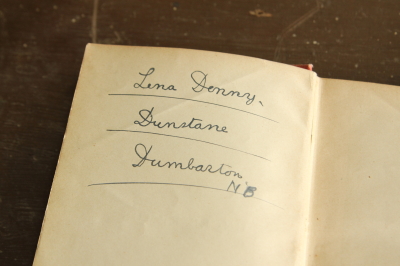 Lena Denny,
Dunstane
Dumbarton
NB